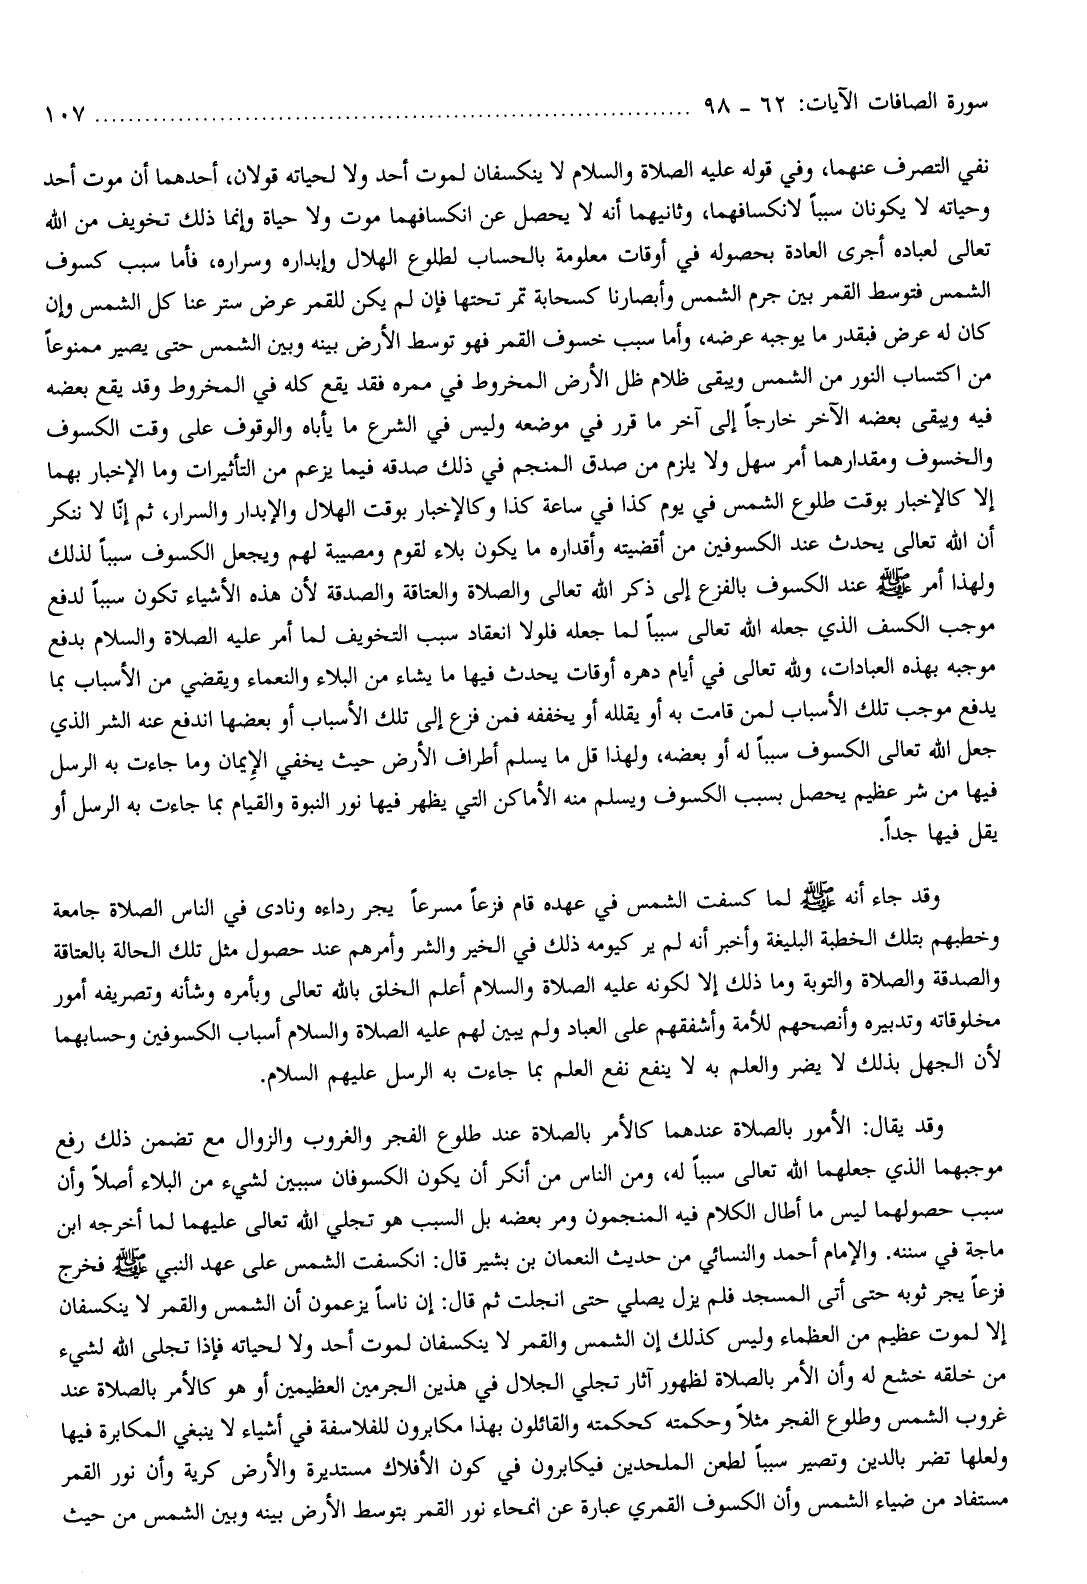 سورة الصافات الآيات: ٦٢ ـ ٩٨ ........................................................................ ١٠٧
نفي التصرف عنهما، وفي قوله عليه الصلاة والسلام لا ينكسفان لموت أحد ولا لحياته قولان، أحدهما أن موت أحد
وحياته لا يكونان سبباً لانكسافهما، وثانيهما أنه لا يحصل عن انكسافهما موت ولا حياة وإنما ذلك تخويف من الله
تعالى لعباده أجرى العادة بحصوله في أوقات معلومة بالحساب لطلوع الهلال وإبداره وسراره، فأما سبب كسوف
الشمس فتوسط القمر بين جرم الشمس وأبصارنا كسحابة تمر تحتها فإن لم يكن للقمر عرض ستر عنا كل الشمس وإن
كان له عرض فبقدر ما يوجبه عرضه، وأما سبب خسوف القمر فهو توسط الأرض بينه وبين الشمس حتى يصير ممنوعاً
من اكتساب النور من الشمس ويبقى ظلام ظل الأرض المخروط في ممره فقد يقع كله في المخروط وقد يقع بعضه
فيه ويبقى بعضه الآخر خارجاً إلى آخر ما قرر في موضعه وليس في الشرع ما يأباه والوقوف على وقت الكسوف
والخسوف ومقدارهما أمر سهل ولا يلزم من صدق المنجم في ذلك صدقه فيما يزعم من التأثيرات وما الإخبار بهما
إلا كالإخبار بوقت طلوع الشمس في يوم كذا في ساعة كذا وكالإخبار بوقت الهلال والإبدار والسرار، ثم إنّا لا ننكر
أن الله تعالى يحدث عند الكسوفين من أقضيته وأقداره ما يكون بلاء لقوم ومصيبة لهم ويجعل الكسوف سبباً لذلك
ولهذا أمر ﷺ عند الكسوف بالفزع إلى ذكر الله تعالى والصلاة والعتاقة والصدقة لأن هذه الأشياء تكون سبباً لدفع
موجب الكسف الذي جعله الله تعالى سبباً لما جعله فلولا انعقاد سبب التخويف لما أمر عليه الصلاة والسلام بدفع
موجبه بهذه العبادات، ولله تعالى في أيام دهره أوقات يحدث فيها ما يشاء من البلاء والنعماء ويقضي من الأسباب بما
يدفع موجب تلك الأسباب لمن قامت به أو يقلله أو يخففه فمن فزع إلى تلك الأسباب أو بعضها اندفع عنه الشر الذي
جعل الله تعالى الكسوف سبباً له أو بعضه، ولهذا قل ما يسلم أطراف الأرض حيث يخفي الإيمان وما جاءت به الرسل
فيها من شر عظيم يحصل بسبب الكسوف ويسلم منه الأماكن التي يظهر فيها نور النبوة والقيام بما جاءت به الرسل أو
يقل فيها جداً.
وقد جاء أنه ﷺ لما كسفت الشمس في عهده قام فزعاً مسرعاً يجر رداءه ونادى في الناس الصلاة جامعة
وخطبهم بتلك الخطبة البليغة وأخبر أنه لم ير كيومه ذلك في الخير والشر وأمرهم عند حصول مثل تلك الحالة بالعتاقة
والصدقة والصلاة والتوبة وما ذلك إلا لكونه عليه الصلاة والسلام أعلم الخلق بالله تعالى وبأمره وشأنه وتصريفه أمور
مخلوقاته وتدبيره وأنصحهم للأمة وأشفقهم على العباد ولم يبين لهم عليه الصلاة والسلام أسباب الكسوفين وحسابهما
لأن الجهل بذلك لا يضر والعلم به لا ينفع نفع العلم بما جاءت به الرسل عليهم السلام.
وقد يقال: الأمور بالصلاة عندهما كالأمر بالصلاة عند طلوع الفجر والغروب والزوال مع تضمن ذلك رفع
موجبهما الذي جعلهما الله تعالى سبباً له، ومن الناس من أنكر أن يكون الكسوفان سببين لشيء من البلاء أصلاً وأن
سبب حصولهما ليس ما أطال الكلام فيه المنجمون ومر بعضه بل السبب هو تجلي الله تعالى عليهما لما أخرجه ابن
ماجة في سننه. والإمام أحمد والنسائي من حديث النعمان بن بشير قال: انكسفت الشمس على عهد النبي ﷺ فخرج
فزعاً يجر ثوبه حتى أتى المسجد فلم يزل يصلي حتى انجلت ثم قال: إن ناساً يزعمون أن الشمس والقمر لا ينكسفان
إلا لموت عظيم من العظماء وليس كذلك إن الشمس والقمر لا ينكسفان لموت أحد ولا لحياته فإذا تجلى الله لشيء
من خلقه خشع له وأن الأمر بالصلاة لظهور آثار تجلي الجلال في هذين الجرمين العظيمين أو هو كالأمر بالصلاة عند
غروب الشمس وطلوع الفجر مثلاً وحكمته كحكمته والقائلون بهذا مكابرون للفلاسفة في أشياء لا ينبغي المكابرة فيها
ولعلها تضر بالدين وتصير سبباً لطعن الملحدين فيكابرون في كون الأفلاك مستديرة والأرض كرية وأن نور القمر
مستفاد من ضياء الشمس وأن الكسوف القمري عبارة عن انمحاء نور القمر بتوسط الأرض بينه وبين الشمس من حيث